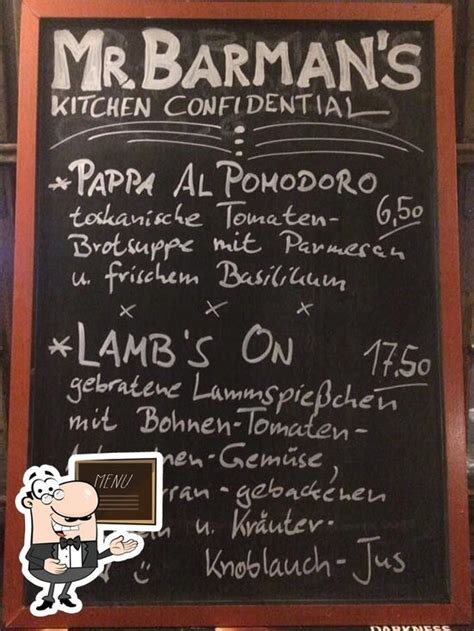 MR. BARMAN'S
KITCHEN CONFIDENTIAL
* PAPPA AL POMODORO
toskanische Tomaten- 6,50
Brotsuppe mit Parmesan
u. frischem Basilikum
x x x
* LAMB'S ON 17,50
gebratene Lammspießchen
mit Bohnen-Tomaten-
-Gemüse,
-gebackenen
u. Kräuter-
Knoblauch-Jus
MENU
DARKNESS